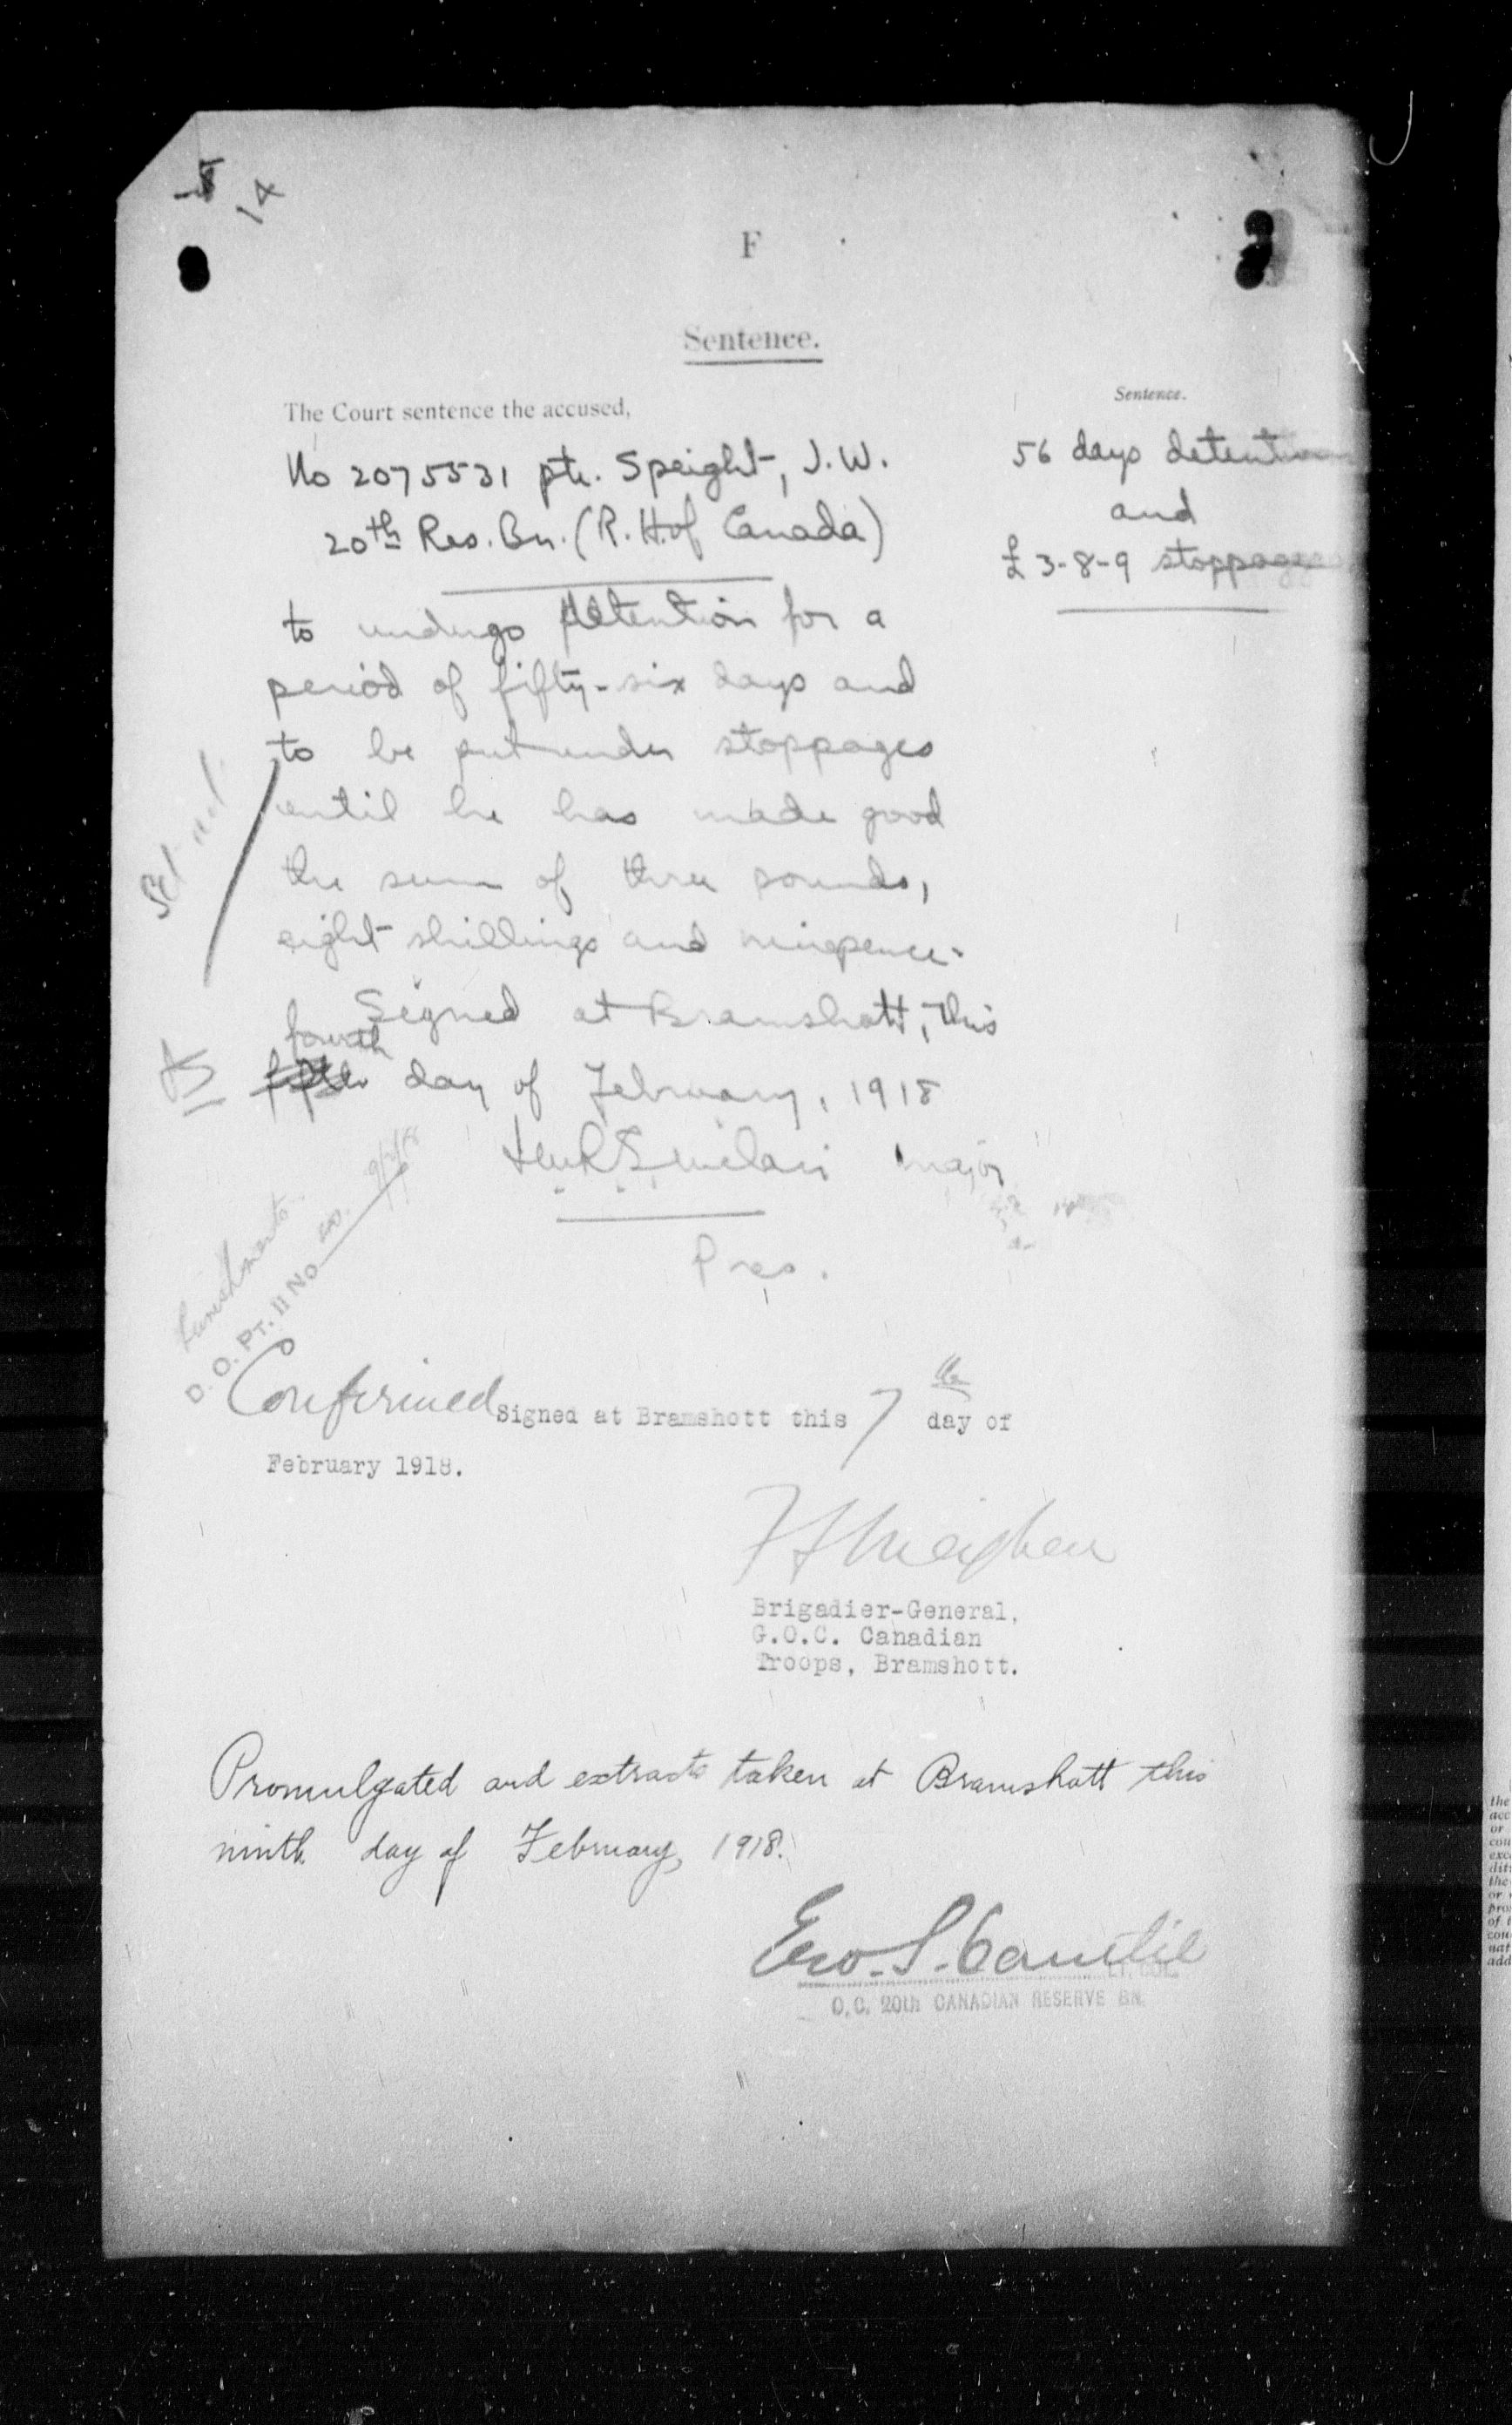 14
F
Sentence.
The Court sentence the accused,
No 2075531 pte. Speight, J.W.
20th Res. Bn. (R.H. of Canada)
Sentence.
56 days detention
and
£ 3-8-9 stoppages
to undergo detention for a
period of fifty-six days and
to be put under stoppages
until he has made good
the sum of three pounds,
eight shillings and ninepence.
Signed at Bramshott, this
fourth
day of February, 1918
Major
Pres.
D.O. PT. II No 40. 9/2/18
Confirmed Signed at Bramshott this 7th day of
February 1918.
F S Meighen
Brigadier-General,
G.O.C. Canadian
Troops, Bramshott.
Promulgated and extracts taken at Bramshott this
ninth day of February, 1918.
Geo. S. Cantlie
LT. COL.
O.C. 20th CANADIAN RESERVE BN.
the
acc
or
cou
exc
dit
the
or
pro
of
con
nat
add